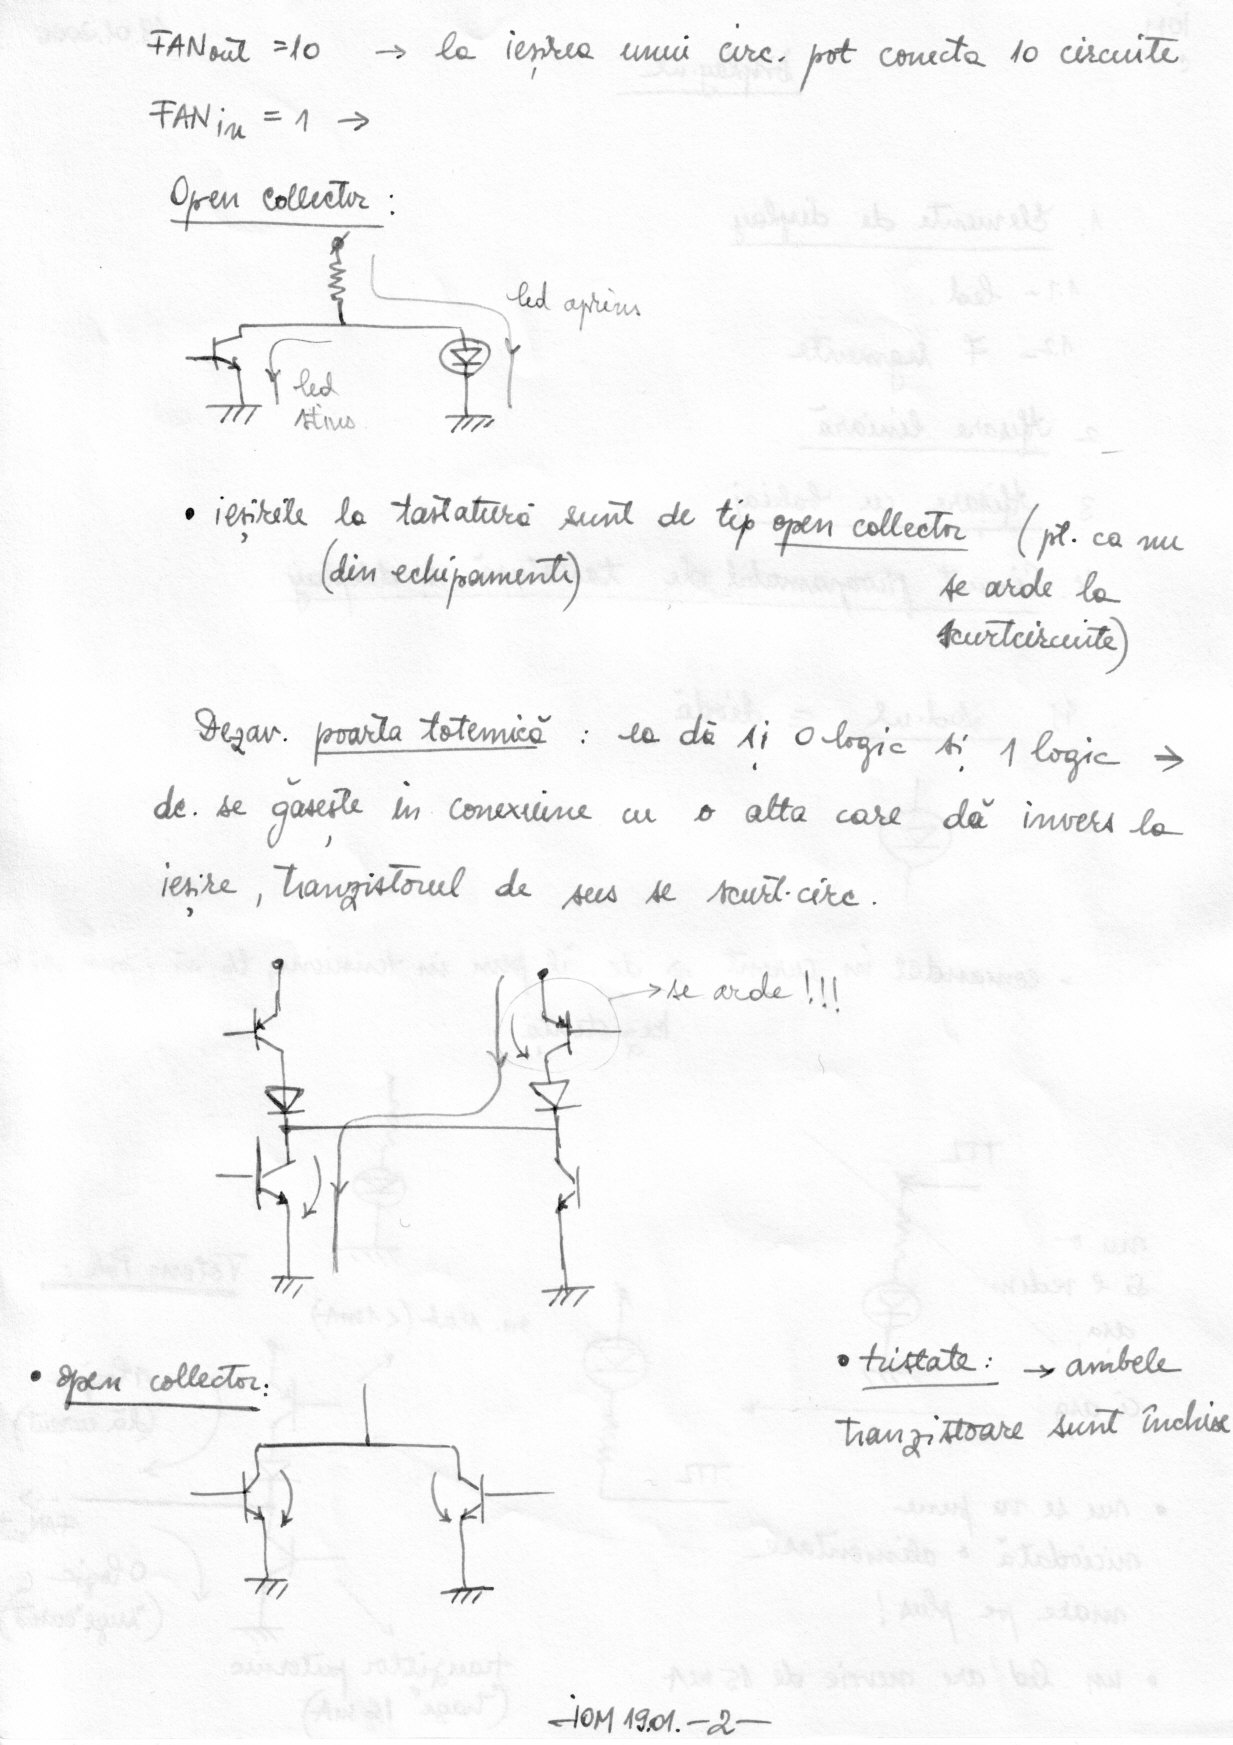 FANout = 10 → la ieșirea unui circ. pot conecta 10 circuite
FANin = 1 →
Open collector :
led aprins
led
stins
• ieșirile la tastatură sunt de tip open collector (pt. ca nu
(din echipamente)
se arde la
scurtcircuite)
Dezav. poarta totemică : ea dă și 0 logic și 1 logic →
dc. se găsește in conexiune cu o alta care dă invers la
ieșire, tranzistorul de sus se scurt-circ.
→ se arde !!!
• open collector:
• tristate: → ambele
tranzistoare sunt închise
—IOM 19.01. —2—